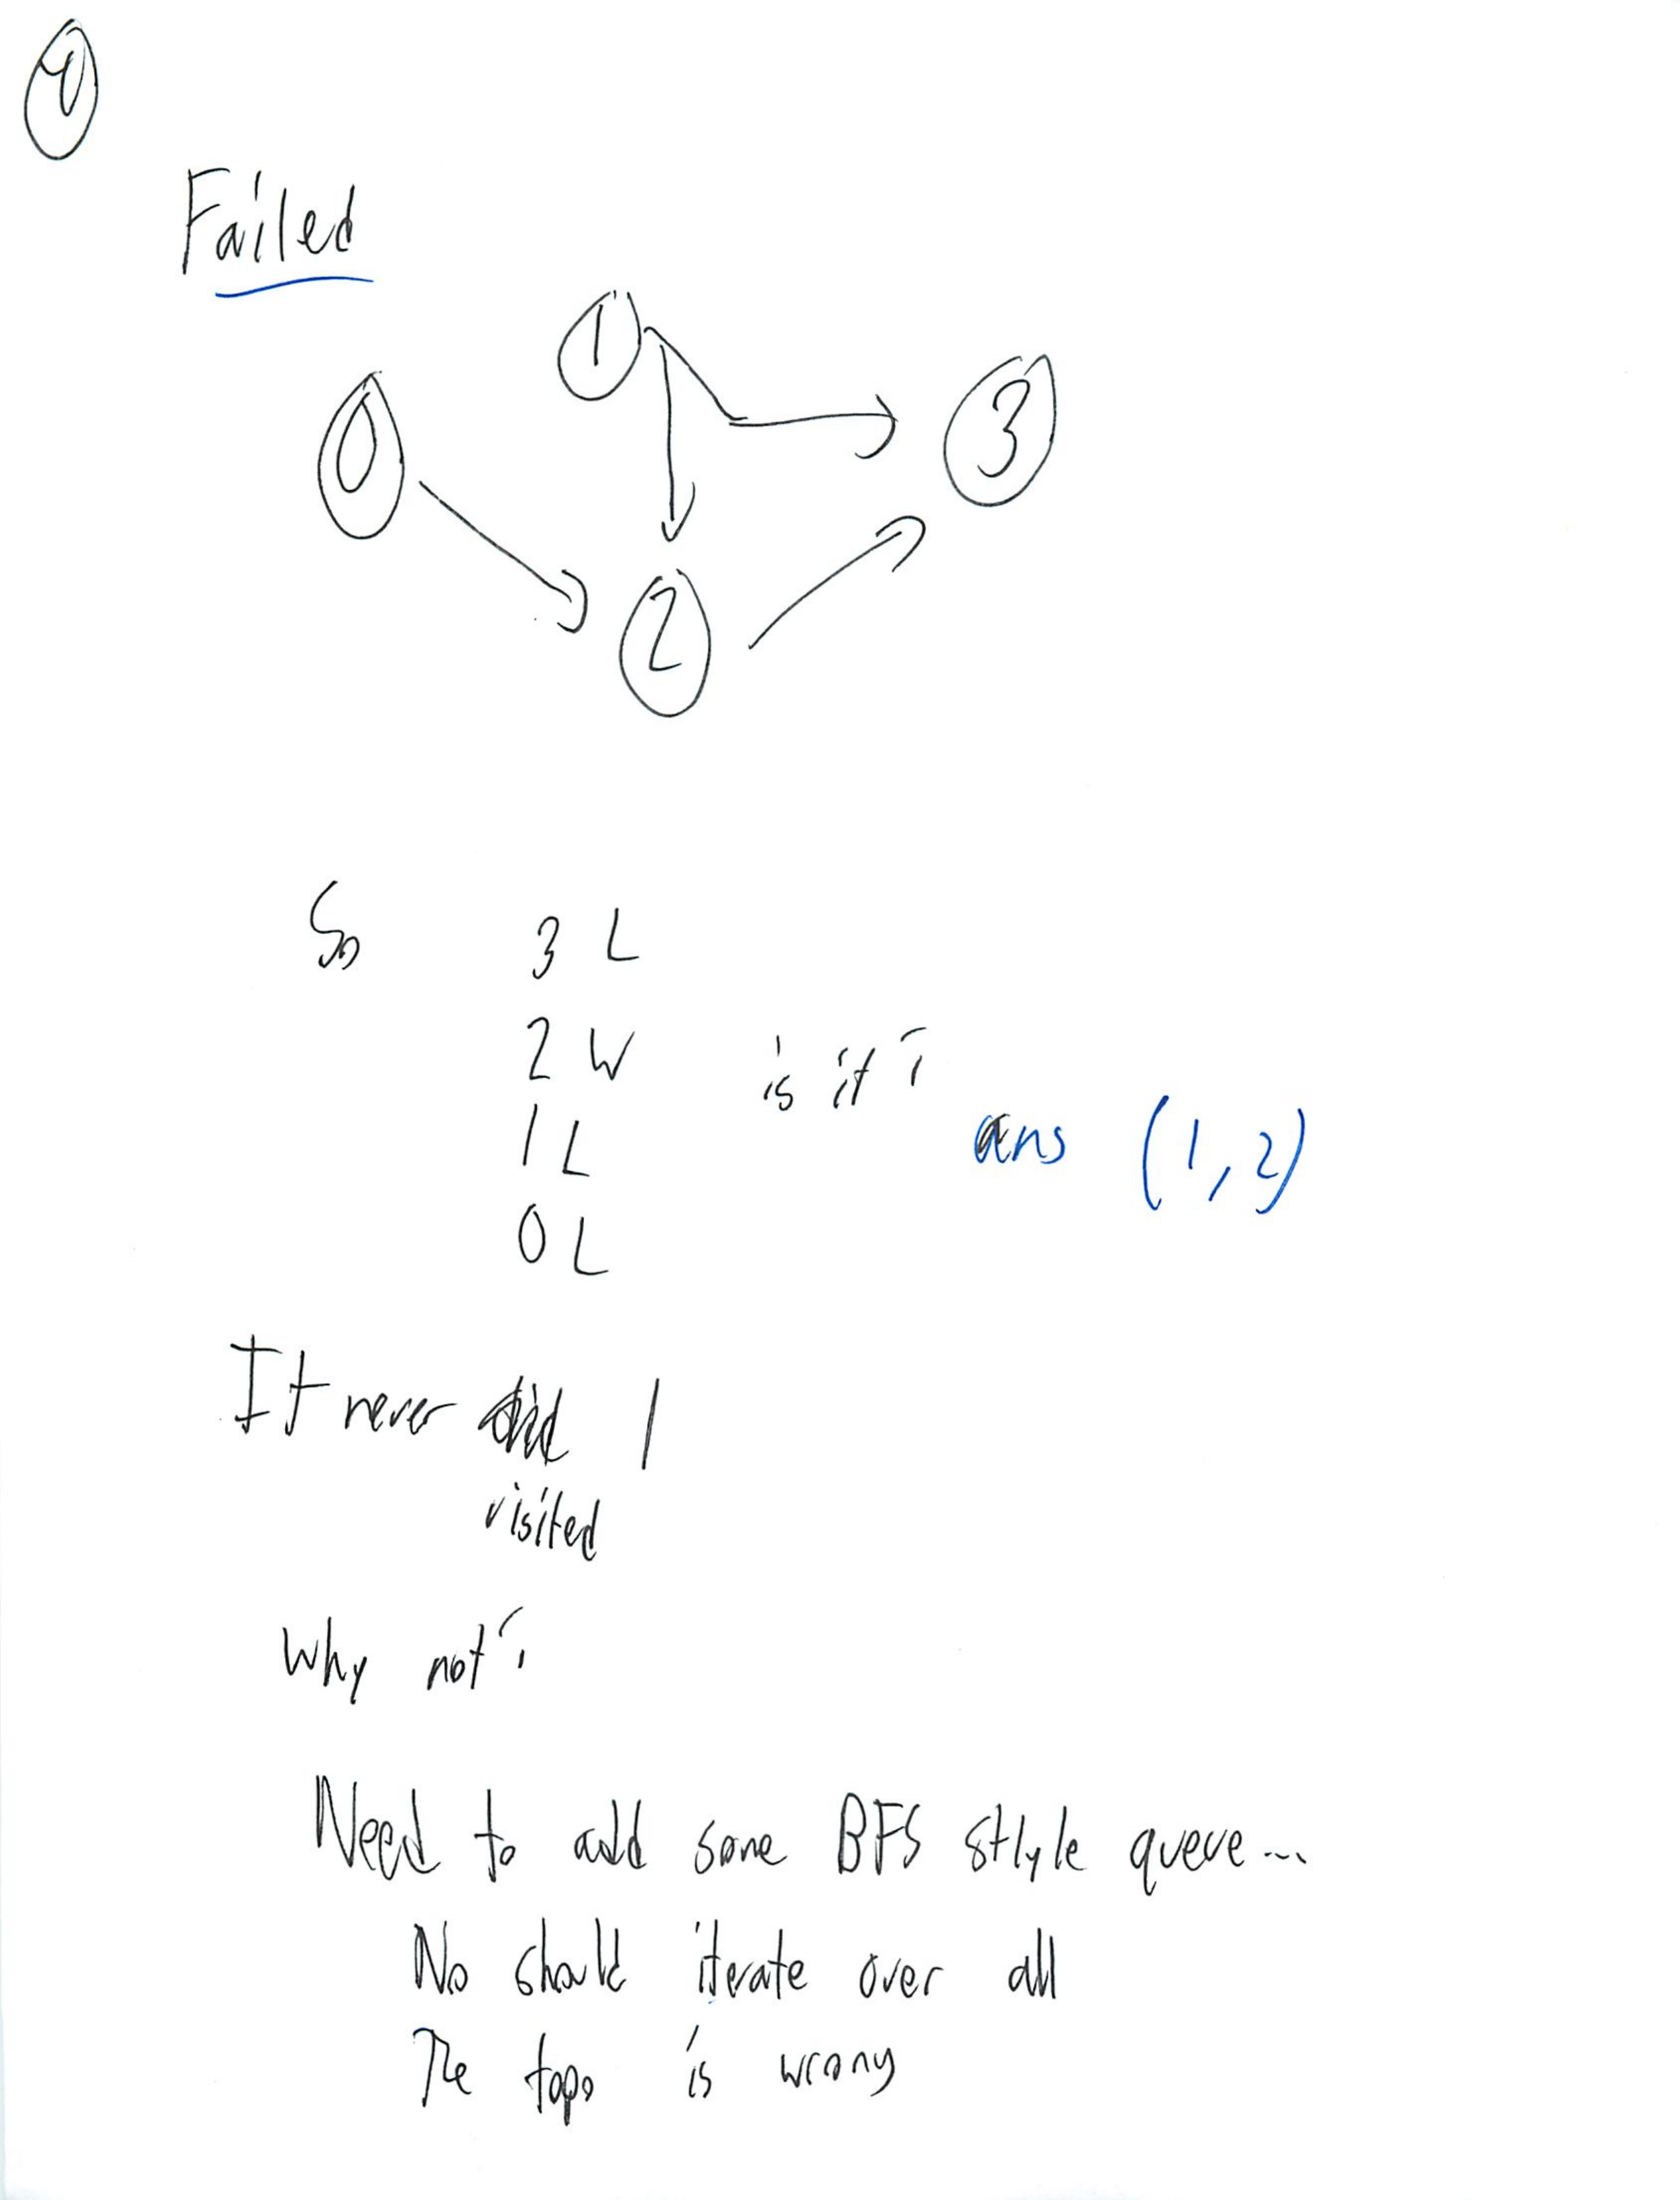 4
Failed
1
0
3
2
So 3 L
2 W is it?
ans (1,2)
1 L
0 L
It never did 1
visited
Why not?
Need to add some BFS sthyle queue...
No should iterate over all
The topo is wrong